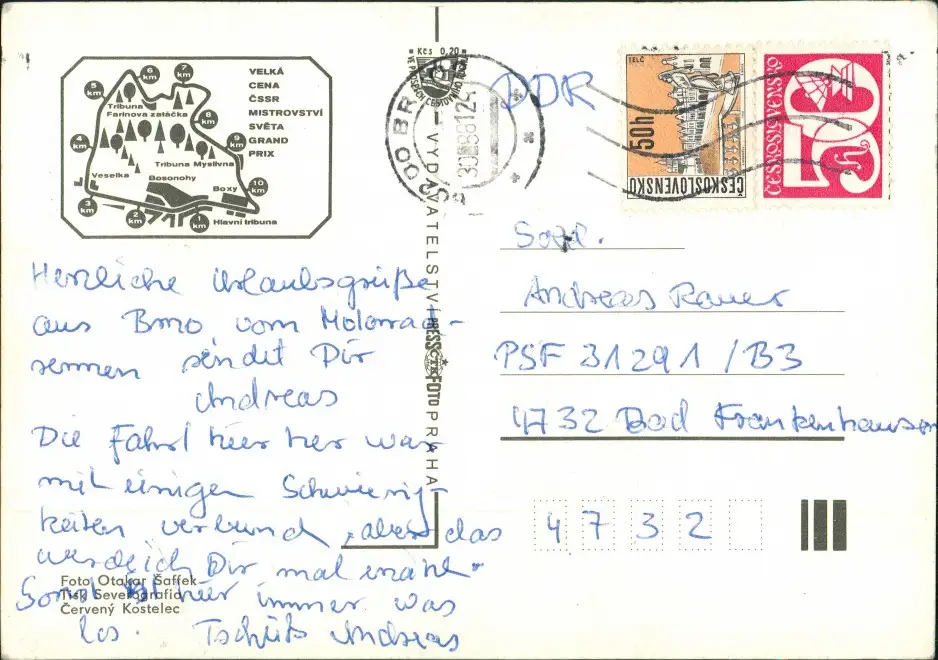 VELKÁ
CENA
ČSSR
MISTROVSTVÍ
SVĚTA
GRAND
PRIX
5 km
6 km
7 km
8 km
9 km
10 km
4 km
3 km
2 km
1 km
Tribuna
Farinova zatáčka
Tribuna Myslivna
Veselka
Bosonohy
Boxy
Hlavní tribuna
Herzliche Urlaubsgrüße
aus Brno vom Motorrad-
rennen sendet Dir
Andreas
Die Fahrt hier her war
mit einigen Schwierig-
keiten verbund, aber das
werde ich Dir mal erzähl-
Sonst ist hier immer was
los. Tschüß Andreas
Foto Otakar Šaffek
Tisk Severografia
Červený Kostelec
Kčs 0,20
VYDAVATELSTVÍ PRESSFOTO PRAHA
ČTK
BRNO
602 00
DDR
TELČ
50h
ČESKOSLOVENSKO
ČESKOSLOVENSKO
50
Sold.
Andreas Rauer
PSF 31291/B3
4732 Bad Frankenhausen
4732